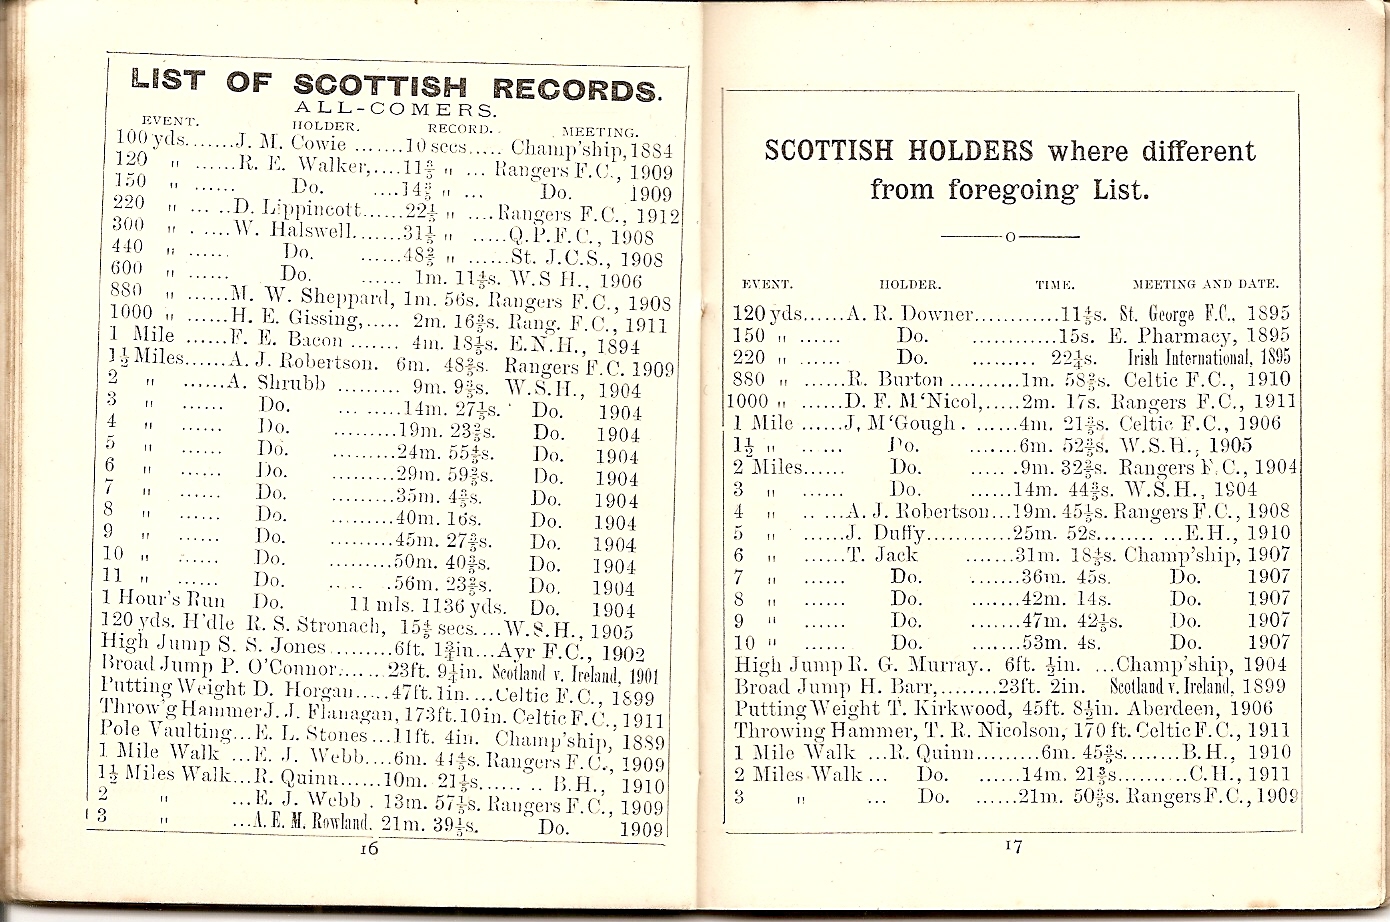 LIST OF SCOTTISH RECORDS.
ALL-COMERS.
EVENT. HOLDER. RECORD. MEETING.
100 yds.......J. M. Cowie .......10 secs..... Champ'ship, 1884
120 " ......R. E. Walker,....11 " ... Rangers F.C., 1909
150 " ...... Do. ....14 " ... Do. 1909
220 " ... ..D. Lippincott......22⅕ " ....Rangers F.C., 1912
300 " . .....W. Halswell.......31⅕ " .....Q.P.F.C., 1908
440 " ...... Do. ......48 " ......St. J.C.S., 1908
600 " ...... Do. ...... 1m. 11⅘s. W.S H., 1906
880 " ......M. W. Sheppard, 1m. 56s. Rangers F.C., 1908
1000 " ......H. E. Gissing,..... 2m. 16s. Rang. F.C., 1911
1 Mile ......F. E. Bacon ....... 4m. 18⅕s. E.N.H., 1894
1½ Miles.......A. J. Robertson. 6m. 48s. Rangers F.C. 1909
2 " ......A. Shrubb ......... 9m. 9s. W.S.H., 1904
3 " ...... Do. ... ......14m. 27⅕s. Do. 1904
4 " ...... Do. .........19m. 23s. Do. 1904
5 " ...... Do. .........24m. 55⅘s. Do. 1904
6 " ...... Do. .........29m. 59s. Do. 1904
7 " ...... Do. .........35m. 4s. Do. 1904
8 " ...... Do. .........40m. 16s. Do. 1904
9 " ...... Do. .........45m. 27s. Do. 1904
10 " ...... Do. .........50m. 40s. Do. 1904
11 " ...... Do. ..... .56m. 23s. Do. 1904
1 Hour's Run Do. 11 mls. 1136 yds. Do. 1904
120 yds. H'dle R. S. Stronach, 15⅘ secs....W.S.H., 1905
High Jump S. S. Jones........6ft. 1¾in...Ayr F.C., 1902
Broad Jump P. O'Connor.......23ft. 9½in. Scotland v. Ireland, 1901
Putting Weight D. Horgan.....47ft. 1in....Celtic F.C., 1899
Throw'g Hammer J. J. Flanagan, 173ft. 10in. Celtic F.C., 1911
Pole Vaulting...E. L. Stones...11ft. 4in. Champ'ship, 1889
1 Mile Walk ...E. J. Webb....6m. 41⅘s. Rangers F.C., 1909
1½ Miles Walk...R. Quinn.....10m. 21⅕s...... .. B.H., 1910
2 " ...E. J. Webb . 13m. 57⅕s. Rangers F.C., 1909
3 " ...A. E. M. Rowland. 21m. 39⅕s. Do. 1909
16
SCOTTISH HOLDERS where different
from foregoing List.
EVENT. HOLDER. TIME. MEETING AND DATE.
120 yds......A. R. Downer............11⅘s. St. George F.C., 1895
150 " ...... Do. ............15s. E. Pharmacy, 1895
220 " ...... Do. ......... 22⅘s. Irish International, 1895
880 " ......R. Burton ..........1m. 58s. Celtic F.C., 1910
1000 " ......D. F. M'Nicol,.....2m. 17s. Rangers F.C., 1911
1 Mile ......J, M'Gough . ......4m. 21s. Celtic F.C., 1906
1½ " .. ... Do. .......6m. 52s. W.S.H., 1905
2 Miles...... Do. ..... .9m. 32s. Rangers F.C., 1904
3 " ...... Do. ......14m. 44s. W.S.H., 1904
4 " .. ...A. J. Robertson...19m. 45⅕s. Rangers F.C., 1908
5 " ......J. Duffy............25m. 52s........ ...E.H., 1910
6 " ......T. Jack .......31m. 18⅘s. Champ'ship, 1907
7 " ...... Do. .......36m. 45s. Do. 1907
8 " ...... Do. .......42m. 14s. Do. 1907
9 " ...... Do. .......47m. 42⅘s. Do. 1907
10 " ...... Do. .......53m. 4s. Do. 1907
High Jump R. G. Murray.. 6ft. ½in. ...Champ'ship, 1904
Broad Jump H. Barr,........23ft. 2in. Scotland v. Ireland, 1899
Putting Weight T. Kirkwood, 45ft. 8½in. Aberdeen, 1906
Throwing Hammer, T. R. Nicolson, 170 ft. Celtic F.C., 1911
1 Mile Walk ...R. Quinn.........6m. 45s........B.H., 1910
2 Miles Walk ... Do. ......14m. 21s.........C.H., 1911
3 " ... Do. ......21m. 50s. Rangers F.C., 1909
17